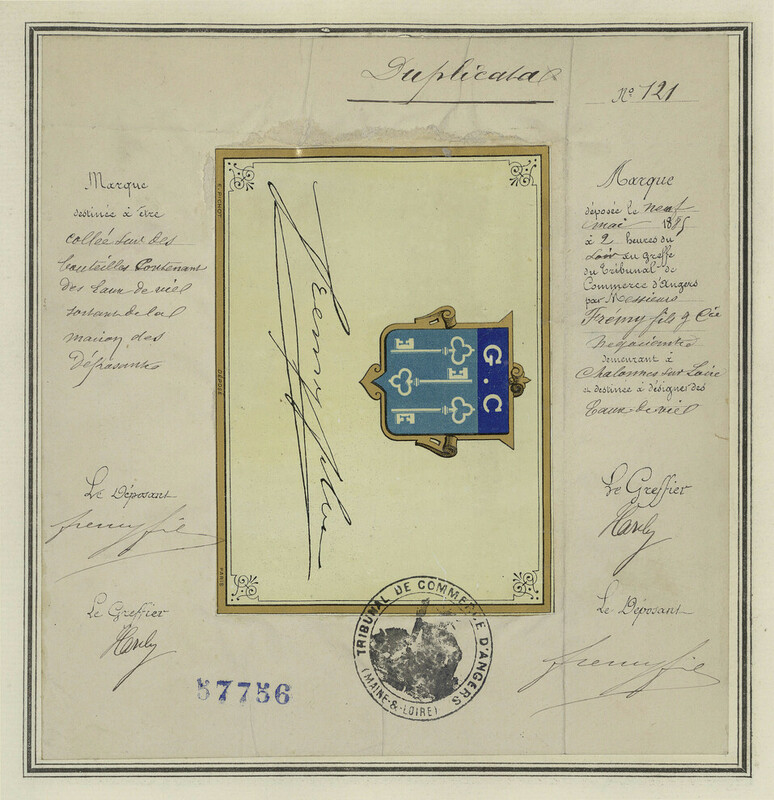 Duplicata
Nº 121
Marque
destinée à être
collée sur des
bouteilles contenant
des Eaux de vie
sortant de la
maison des
déposants
Le Déposant
fremy fils
Le Greffier
57756
V. PICHOT
DÉPOSÉ
PARIS
Fremy fils
G.C
TRIBUNAL DE COMMERCE D'ANGERS
(MAINE-&-LOIRE)
Marque
déposée le neuf
mai 1885
à 2 heures du
soir au greffe
du Tribunal de
Commerce d'Angers
par Messieurs
Frémy fils & Cie
négociants
demeurant à
Chalonnes sur Loire
et destinée à désigner des
Eaux de vie
Le Greffier
Le Déposant
fremy fils